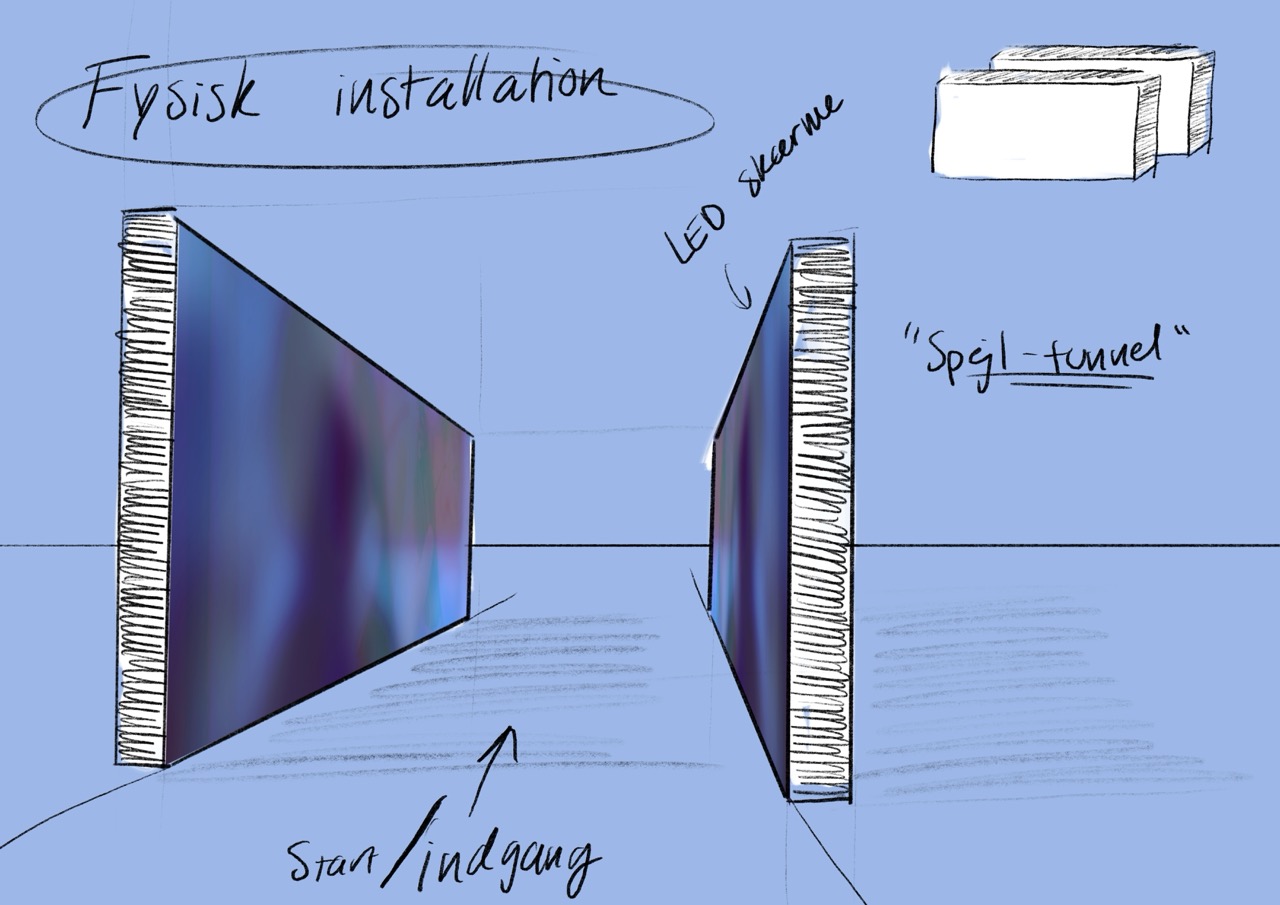 Fysisk installation
LED skærme
"Spejl-tunnel"
Start/indgang